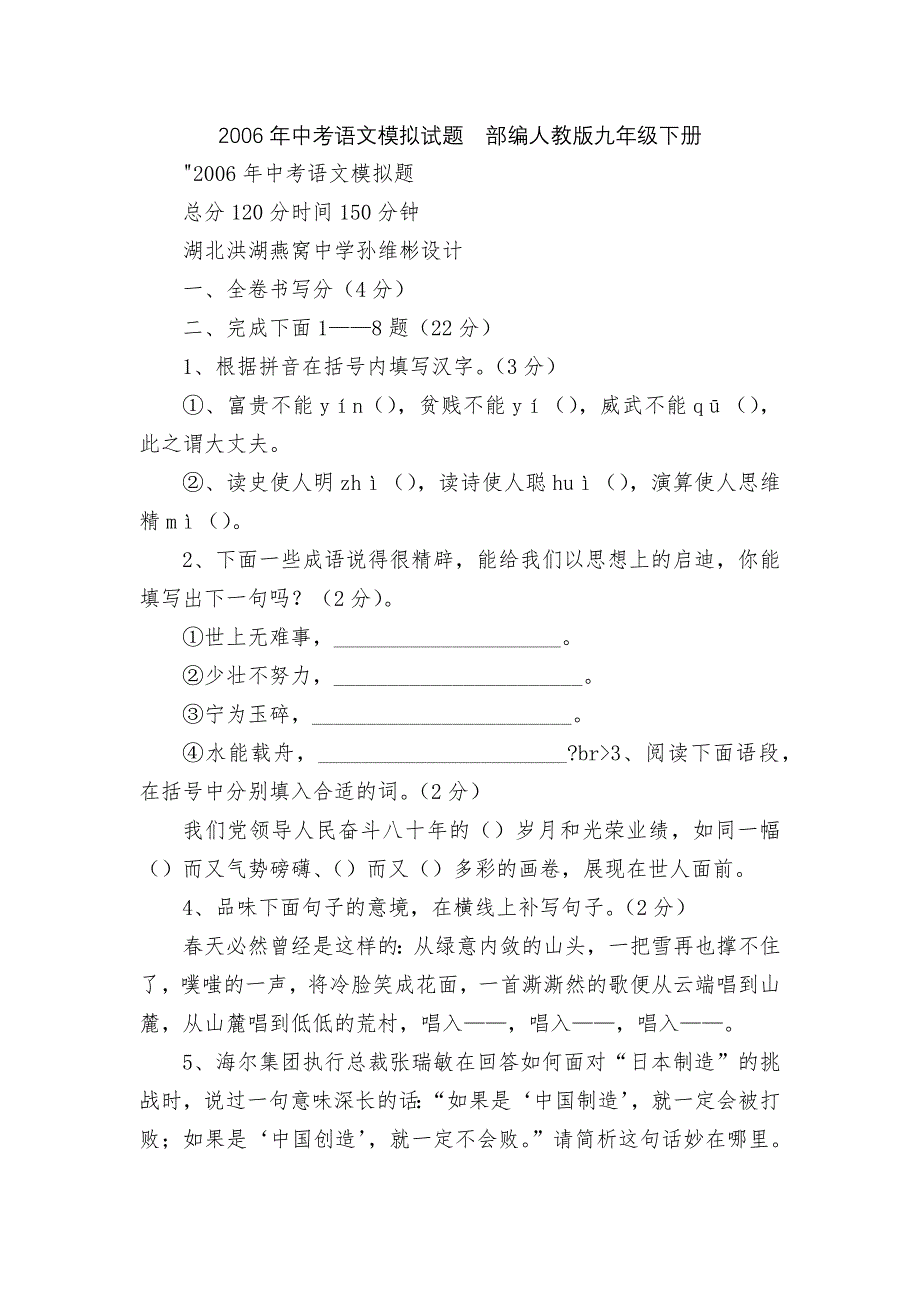 2006 年中考语文模拟试题　部编人教版九年级下册
"2006 年中考语文模拟题
总分 120 分时间 150 分钟
湖北洪湖燕窝中学孙维彬设计
一、全卷书写分（4 分）
二、完成下面 1——8 题（22 分）
1、根据拼音在括号内填写汉字。（3 分）
①、富贵不能 yín（），贫贱不能 yí（），威武不能 qū（），
此之谓大丈夫。
②、读史使人明 zhì（），读诗使人聪 huì（），演算使人思维
精 mì（）。
2、下面一些成语说得很精辟，能给我们以思想上的启迪，你能
填写出下一句吗？（2 分）。
①世上无难事，_____________________。
②少壮不努力，_______________________。
③宁为玉碎，________________________。
④水能载舟，_______________________?br>3、阅读下面语段，
在括号中分别填入合适的词。（2 分）
我们党领导人民奋斗八十年的（）岁月和光荣业绩，如同一幅
（）而又气势磅礴、（）而又（）多彩的画卷，展现在世人面前。
4、品味下面句子的意境，在横线上补写句子。（2 分）
春天必然曾经是这样的：从绿意内敛的山头，一把雪再也撑不住
了，噗嗤的一声，将冷脸笑成花面，一首澌澌然的歌便从云端唱到山
麓，从山麓唱到低低的荒村，唱入——，唱入——，唱入——。
5、海尔集团执行总裁张瑞敏在回答如何面对“日本制造”的挑
战时，说过一句意味深长的话：“如果是‘中国制造’，就一定会被打
败；如果是‘中国创造’，就一定不会败。”请简析这句话妙在哪里。